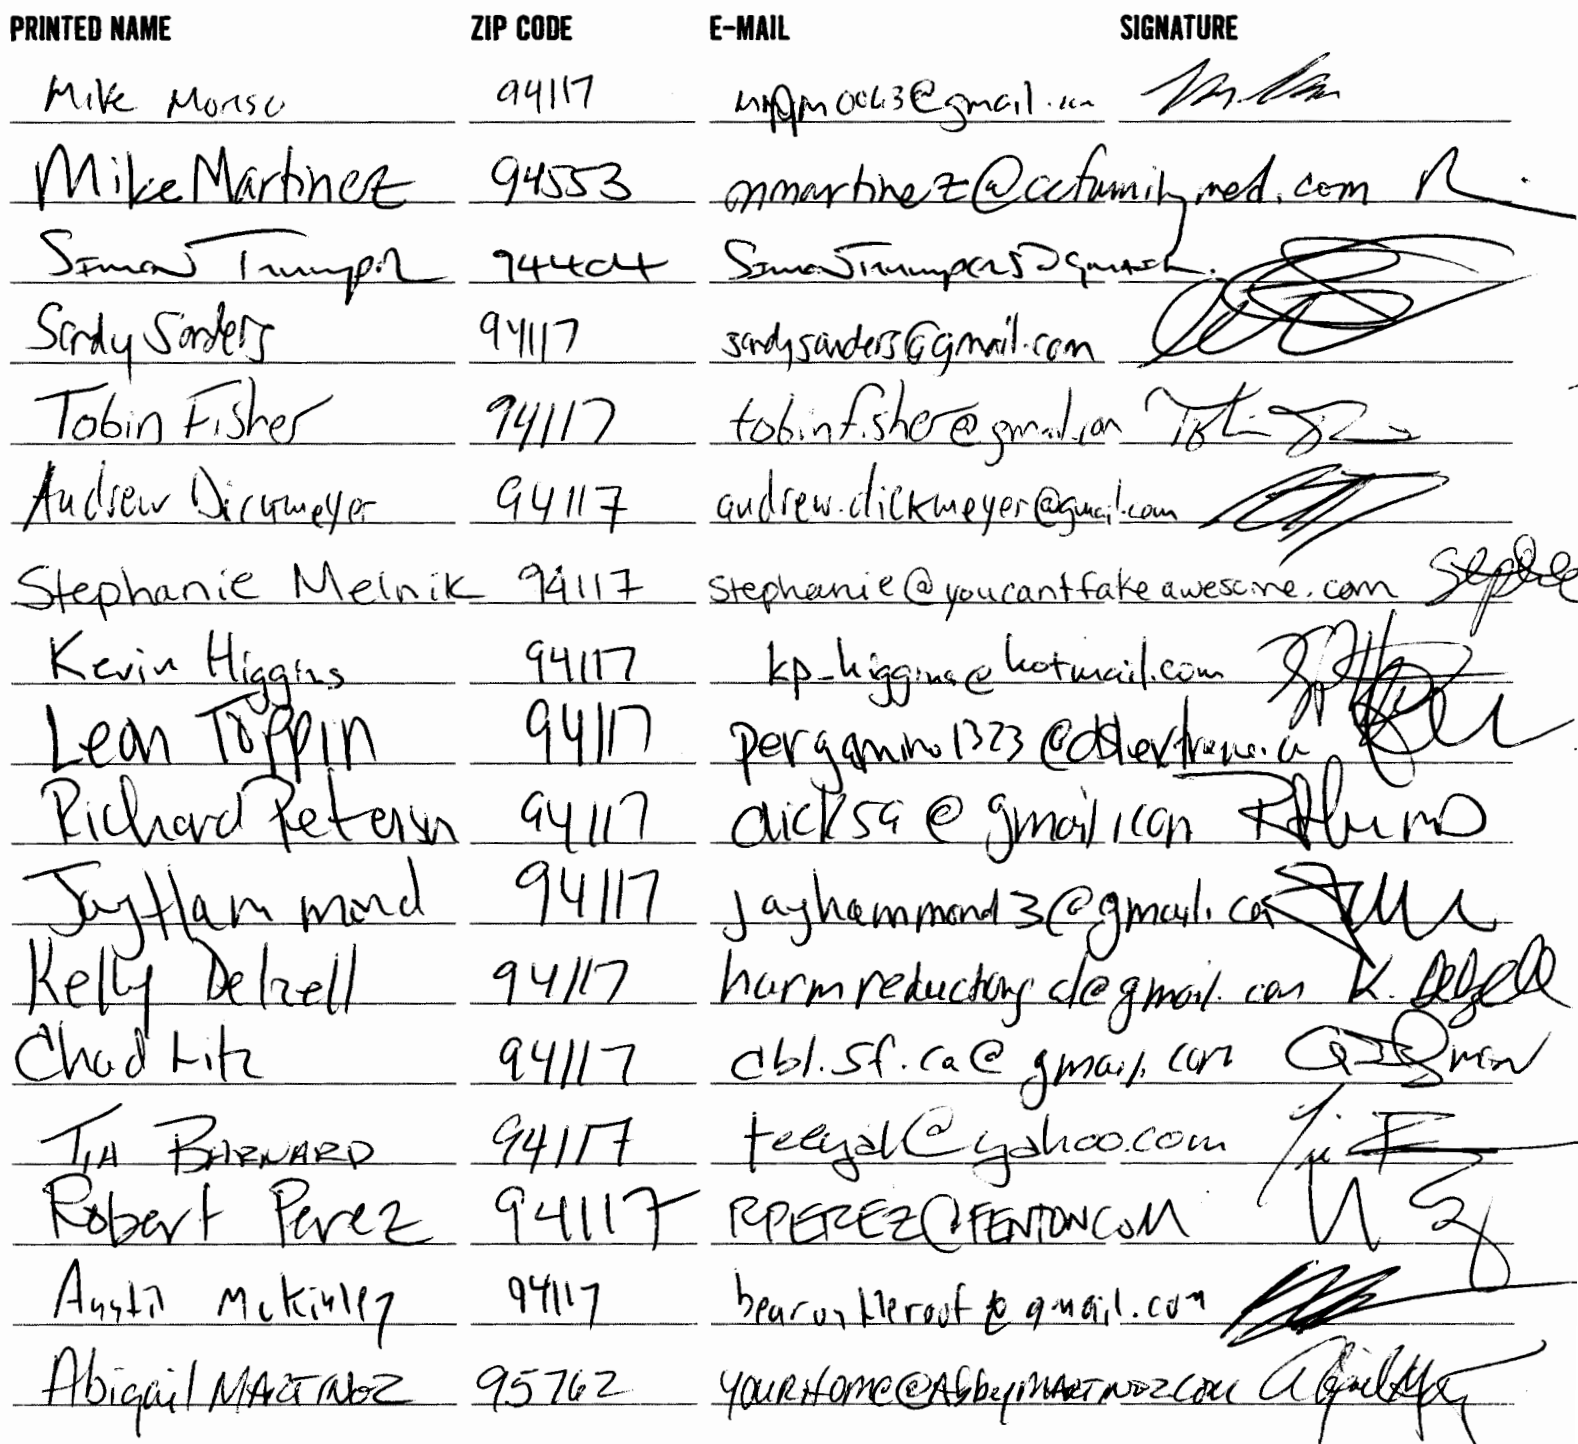 PRINTED NAME ZIP CODE E-MAIL SIGNATURE
Mike 94117 @gmail
Mike Martinez 94553 mmartinez@ccfamilymed.com
Simon Trumper 94404
Sandy Sanders 94117 sandysanders@gmail.com
Tobin Fisher 94117 tobinfisher@gmail.com
Andrew Dickmeyer 94117 andrew.dickmeyer@gmail.com
Stephanie Melnik 94117 stephanie@youcantfakeawesome.com
Kevin Higgins 94117 kp_higgins@hotmail.com
Leon Toppin 94117
Richard Peterson 94117 dick59@gmail.com
Jay Hammond 94117 jayhammond3@gmail.com
Kelly Delzell 94117 K. Delzell
Chad Litz 94117 cbl.sf.ca@gmail.com
Tia BARNARD 94117 teeyal@yahoo.com
Robert Perez 94117 RPEREZ@FENTON.COM
Austin McKinley 94117
Abigail MARTINEZ 95762 YOURHOME@AbbyMARTINEZ.COM